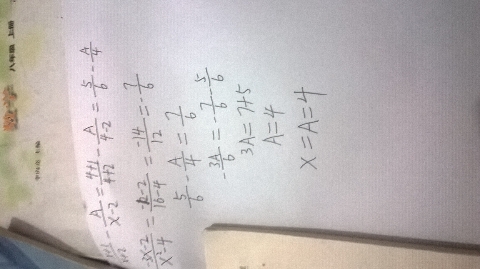 八年级 上册
数学
\frac{x+1}{x+2} - \frac{A}{x-2} = \frac{4+1}{4+2} - \frac{A}{4-2} = \frac{5}{6} - \frac{A}{4}
\frac{-3x-2}{x^2-4} = \frac{-12-2}{16-4} = \frac{-14}{12} = -\frac{7}{6}
\frac{5}{6} - \frac{A}{4} = \frac{7}{6}
-\frac{3A}{6} = -\frac{7}{6} - \frac{5}{6}
3A = 7+5
A = 4
x = A = 4